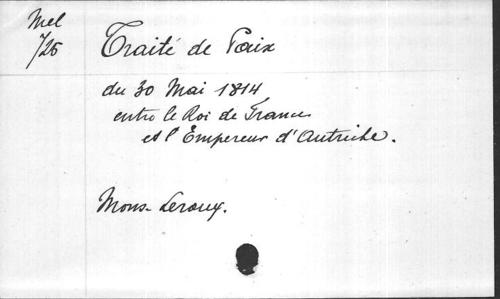 Mel
725
Traité de Paix
du 30 Mai 1814
entre le Roi de France
et l'Empereur d'Autriche.
Mons - Leroux.